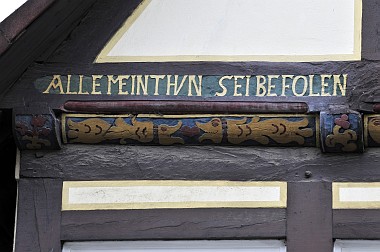 ALLE MEIN THVN SEI BEFOLEN